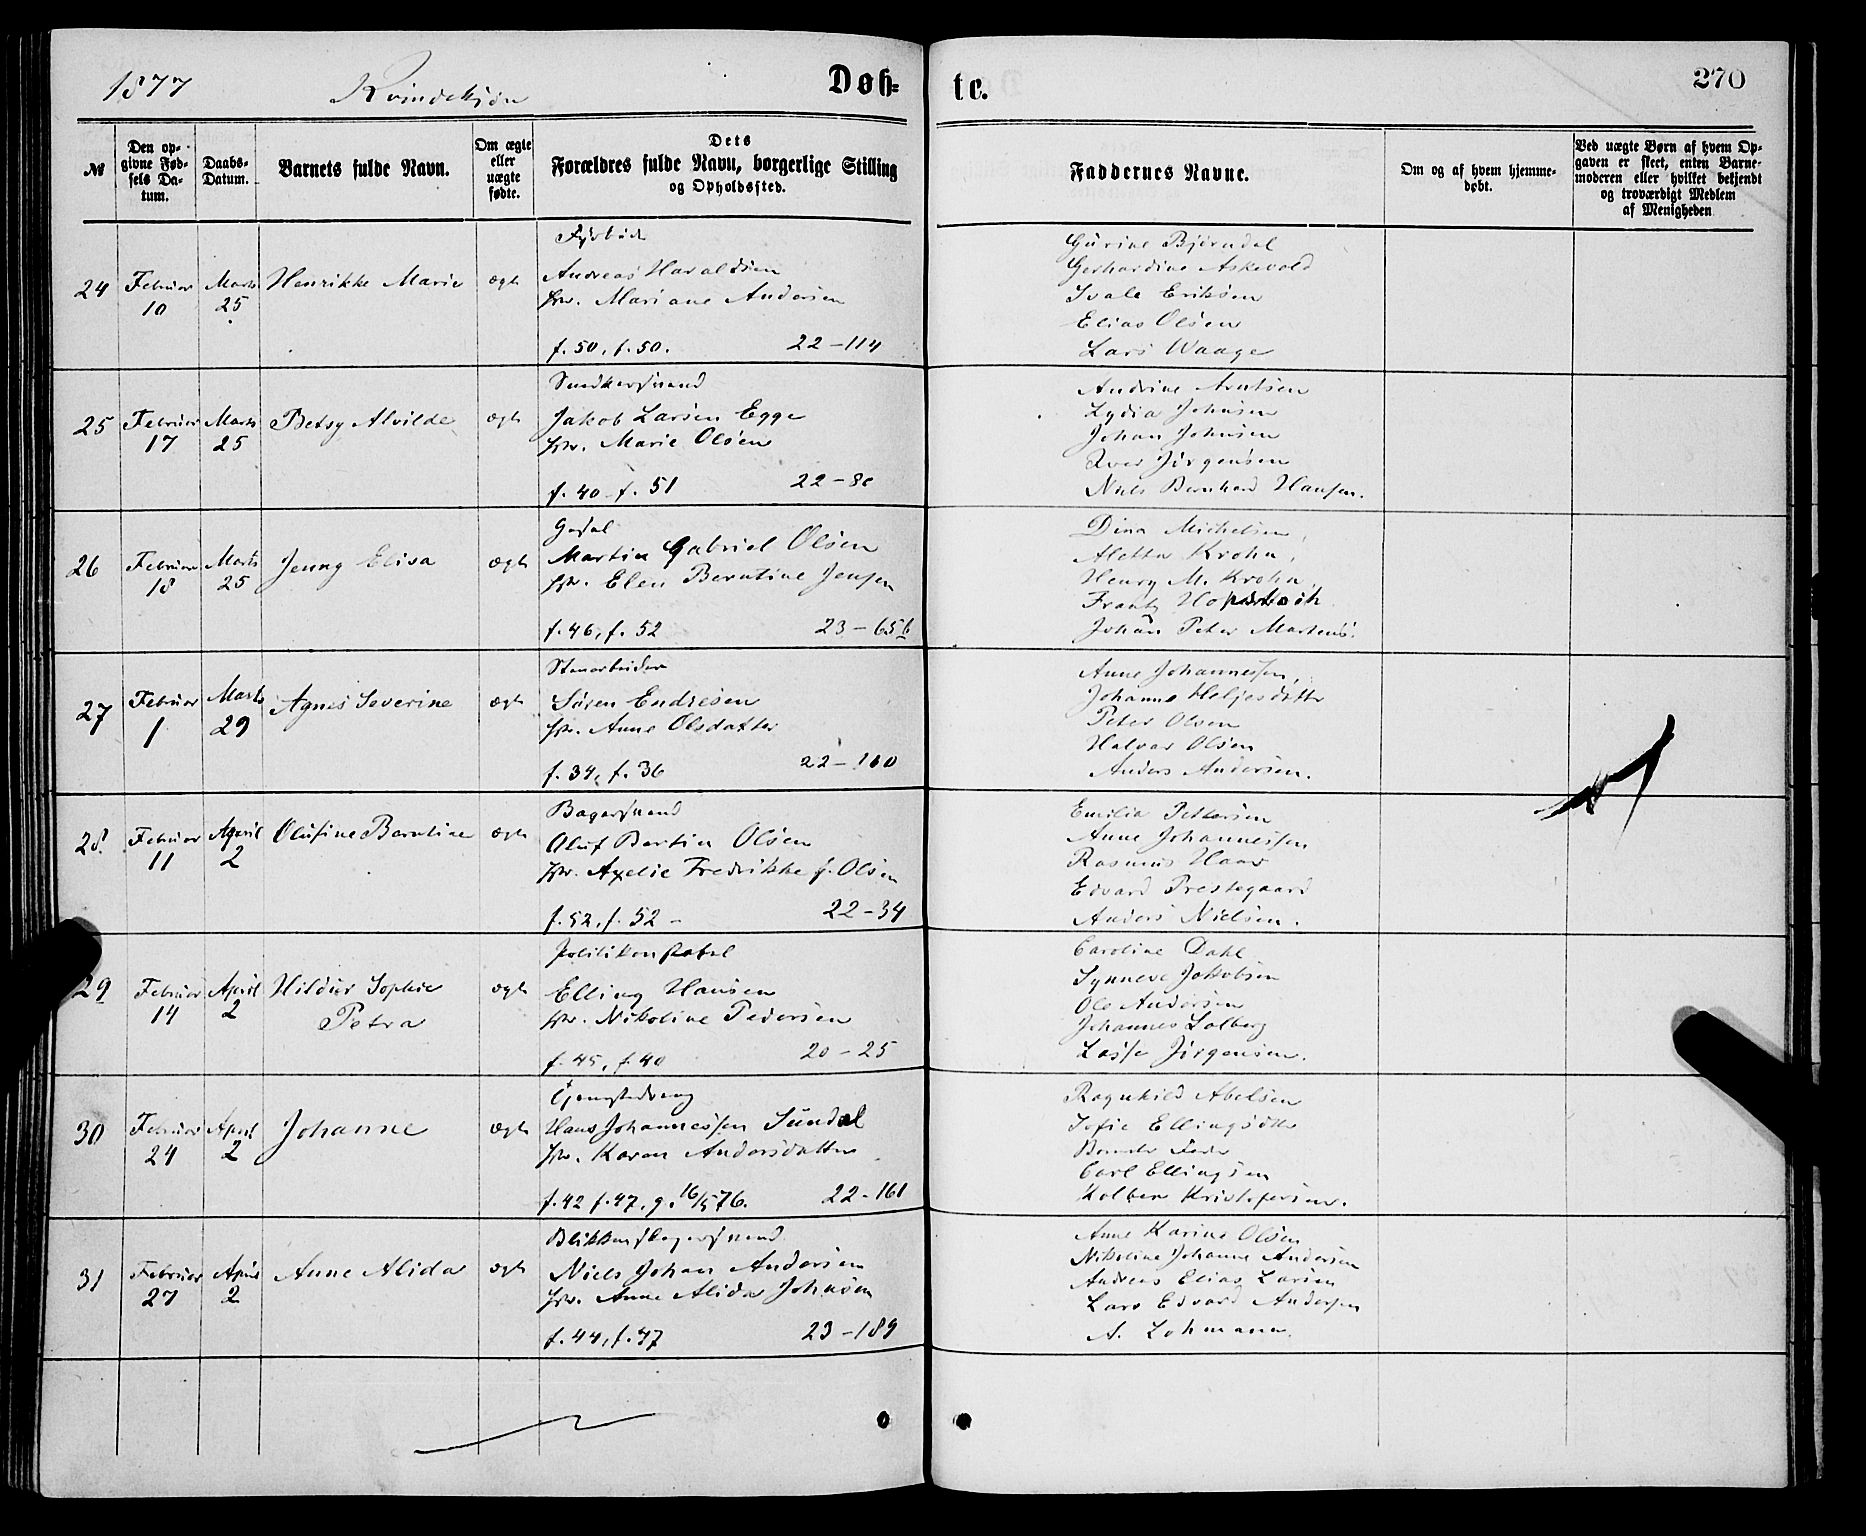 1877 Kvindekjøn Døb- te. 270
№
Den op-
givne Fød-
sels Da-
tum.
Daabs-
Datum.
Barnets fulde Navn.
Om ægte
eller
uægte
fødte.
Dets
Forældres fulde Navn, borgerlige Stilling
og Opholdssted.
Faddernes Navne.
Om og af hvem hjemme-
døbt.
Ved uægte Børn af hvem Op-
gaven er skeet, enten Barne-
moderen eller hvilket bekjendt
og troværdigt Medlem
af Menigheden
24 Februar 10 Marts 25 Henrikke Marie ægte
Fyrbøder
Andreas Haraldsen
Hu. Mariane Andersen
f. 50, f. 50. 22-114
Gurine Bjørndal
Gerhardine Askevold
Ivale Eriksen
Elias Olsen
Lars Waage
25 Februar 17 Marts 25 Betsy Alvilde ægte
Snedkersvend
Jakob Larsen Egge
Hu. Marie Olsen
f. 40 f. 51 22-80
Andrine Arntsen
Lydia Johnsen
Johan Johnsen
Iver Jørgensen
Niels Bernhard Hansen.
26 Februar 18 Marts 25 Jenny Elisa ægte
Martin Gabriel Olsen
Hu. Elen Berntine Jensen
f. 46, f. 52 23-65b
Dina Michelsen,
Aletta Krohn,
Henry M. Krohn,
Frantz
Johan Peter Martens.
27 Februar 1 Marts 29 Agnes Severine ægte
Stenarbeider
Søren Endresen
Hu. Anne Olsdatter
f. 34, f. 36 22-160
Anne Johannessen,
Johanne Heljesdatter
Peter Olsen
Halvor Olsen
Anders Andersen.
28 Februar 11 April 2 Olufine Berntine ægte
Bagersvend
Oluf Bertin Olsen
Hu. Axelie Fredrikke f. Olsen
f. 52, f. 52 - 22-34
Emilia Pettersen
Anne Johannessen
Rasmus Haar
Edvard Prestegaard
Anders Nielsen.
29 Februar 14 April 2 Hildur Sophie
Petra ægte
Politikonstabel
Elling Hansen
Hu. Nikoline Pedersen
f. 45, f. 40 20-25
Caroline Dahl
Synneve Jakobsen
Ole Andersen
Johannes Solberg
Lasse Jørgensen.
30 Februar 24 April 2 Johanne ægte
Tjenestedreng
Hans Johannessen Sundal
Hu. Karen Andersdatter
f. 42 f. 47, g. 16/5 76. 22-161
Ragnhild Abelsen
Sofie Ellingsdtr
Carl Ellingsen
Kolben Kristofersen.
31 Februar 27 April 2 Anne Alida ægte
Blikkenslagersvend
Niels Johan Andersen
Hu. Anne Alida Johnsen
f. 44, f. 47 23-189
Anne Karine Olsen
Nikoline Johanne Andersen
Andreas Elias Larsen
Lars Edvard Andersen
A. Lohmann.